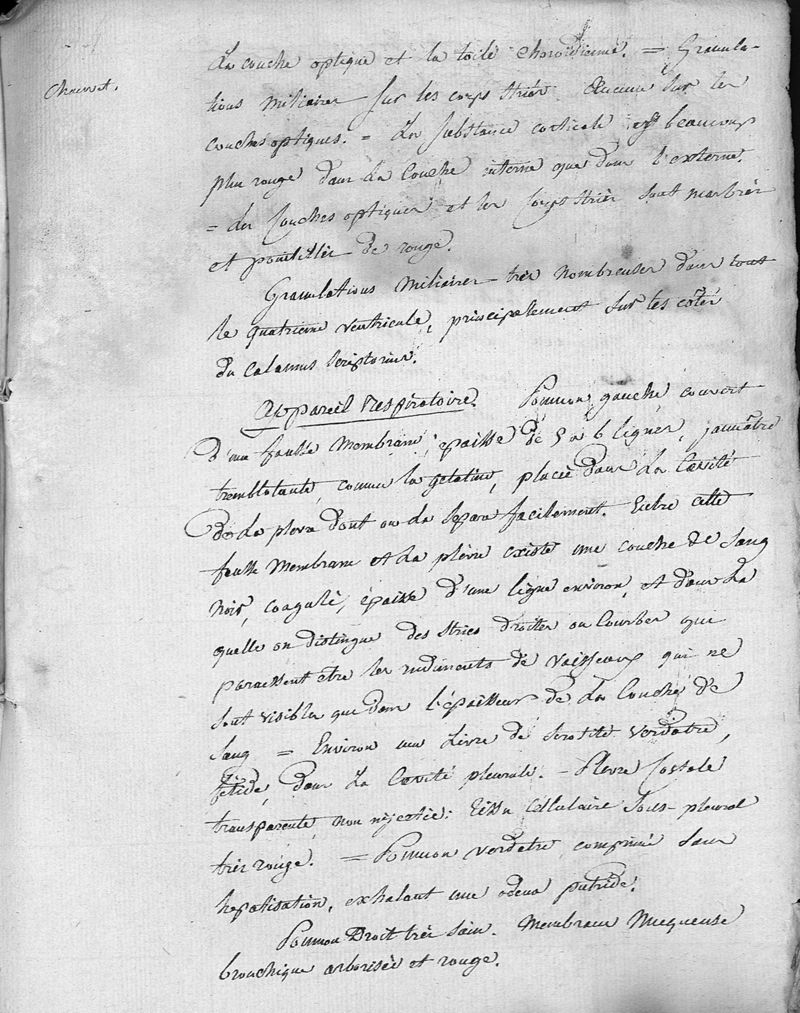 la couche optique et la toile choroïdienne. = Granula-
tions miliaires sur les corps striés. Aucune sur les
couches optiques. = La substance corticale est beaucoup
plus rouge dans la couche interne que dans l'externe.
= Les couches optiques et les corps striés sont marbrés
et pointillés de rouge.
Granulations miliaires très nombreuses dans tout
le quatrieme ventricule, principalement sur les côtés
du calamus scriptorius.
Appareil respiratoire. Poumon gauche couvert
d'une fausse membrane, épaisse de 5 à 6 lignes, jaunâtre
tremblotante, comme la gélatine, placée dans la cavité
de la plevre dont on la separe facilement. Entre cette
fausse membrane et la plèvre existe une couche de sang
noir, coagulé, épaisse d'une ligne environ, et dans la
quelle on distingue des stries droites ou courbes qui
paraissent etre les rudiments de vaisseaux qui ne
sont visibles que dans l'épaisseur de la couche de
sang = Environ une livre de serosité verdatre,
fétide, dans la cavité pleurale. - Plevre costale
transparente, non injectée; tissu cellulaire sous-pleural
très rouge. = Poumon verdatre, comprimé sans
hepatisation, exhalant une odeur putride.
Poumon Droit très sain. Membrane muqueuse
bronchique arborisée et rouge.